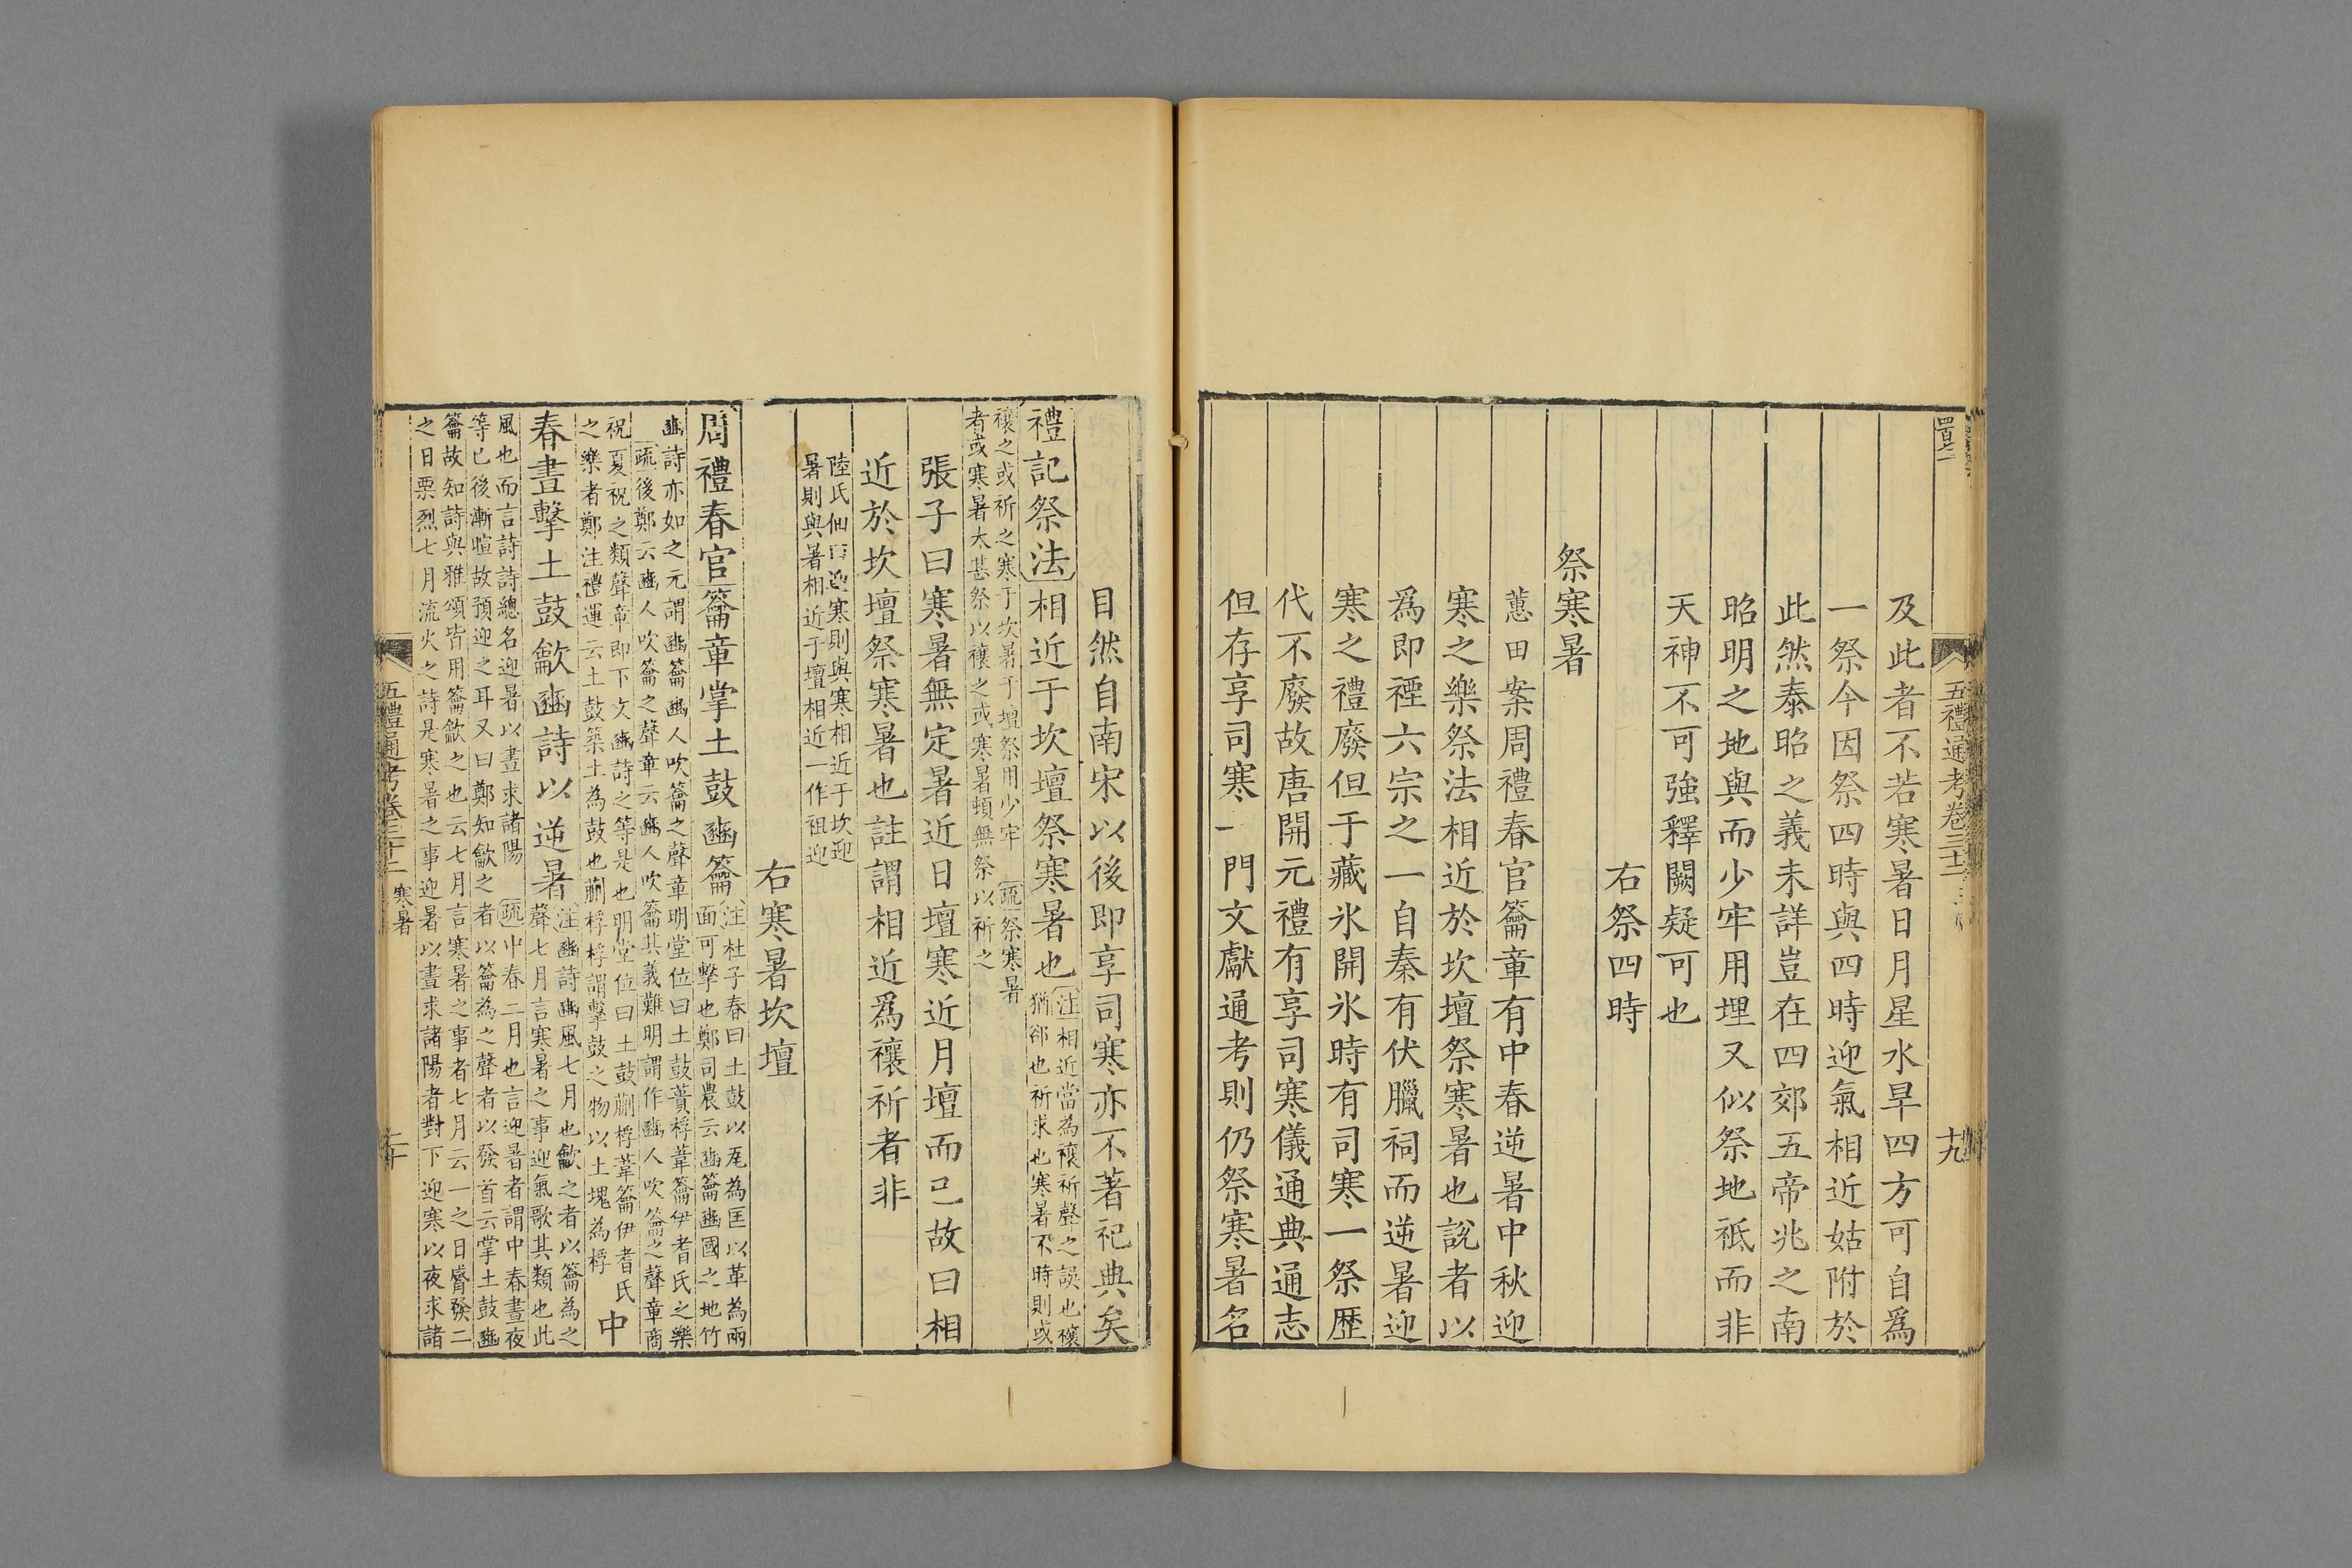 五禮通考卷三十二
十九
及此者不若寒暑日月星水旱四方可自爲
一祭今因祭四時與四時迎氣相近姑附於
此然泰昭之義未詳豈在四郊五帝兆之南
昭明之地與而少牢用埋又似祭地祗而非
天神不可強釋闕疑可也
右祭四時
祭寒暑
蕙田案周禮春官籥章有中春逆暑中秋迎
寒之樂祭法相近於坎壇祭寒暑也說者以
爲即禋六宗之一自秦有伏臘祠而逆暑迎
寒之禮廢但于藏氷開氷時有司寒一祭歴
代不廢故唐開元禮有享司寒儀通典通志
但存享司寒一門文獻通考則仍祭寒暑名
目然自南宋以後即享司寒亦不著祀典矣
禮記祭法相近于坎壇祭寒暑也
注相近當為禳祈聲之誤也禳
猶郤也祈求也寒暑不時則或
禳之或祈之寒于坎暑于壇祭用少牢 疏祭寒暑
者或寒暑太甚祭以禳之或寒暑頓無祭以祈之
張子曰寒暑無定暑近日壇寒近月壇而已故曰相
近於坎壇祭寒暑也註謂相近爲禳祈者非
陸氏佃曰迎寒則與寒相近于坎迎
暑則與暑相近于壇相近一作祖迎
右寒暑坎壇
周禮春官籥章掌土鼓豳籥
注杜子春曰土鼓以瓦為匡以革為兩
面可擊也鄭司農云豳籥豳國之地竹
豳詩亦如之元謂豳籥豳人吹籥之聲章明堂位曰土鼓蕢桴葦籥伊耆氏之樂
疏後鄭云豳人吹籥之聲章云豳人吹籥其義難明謂作豳人吹籥之聲章商
祝夏祝之類聲章即下文豳詩之等是也明堂位曰土鼓蒯桴葦籥伊耆氏
之樂者鄭注禮運云土鼓築土為鼓也蒯桴桴謂擊鼓之物以土塊為桴
中
春晝擊土鼓龡豳詩以逆暑
注豳詩豳風七月也龡之者以籥為之
聲七月言寒暑之事迎氣歌其類也此
風也而言詩詩總名迎暑以晝求諸陽 疏中春二月也言迎暑者謂中春晝夜
等已後漸暄故預迎之耳又曰鄭知龡之者以籥為之聲者以發首云掌土鼓豳
籥故知詩與雅頌皆用籥龡之也云七月言寒暑之事者七月云一之日觱發二
之日栗烈七月流火之詩是寒暑之事迎暑以晝求諸陽者對下迎寒以夜求諸
五禮通考卷三十二 寒暑
二十